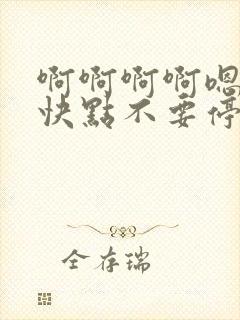 啊啊啊啊嗯
快點不要停
全存瑞